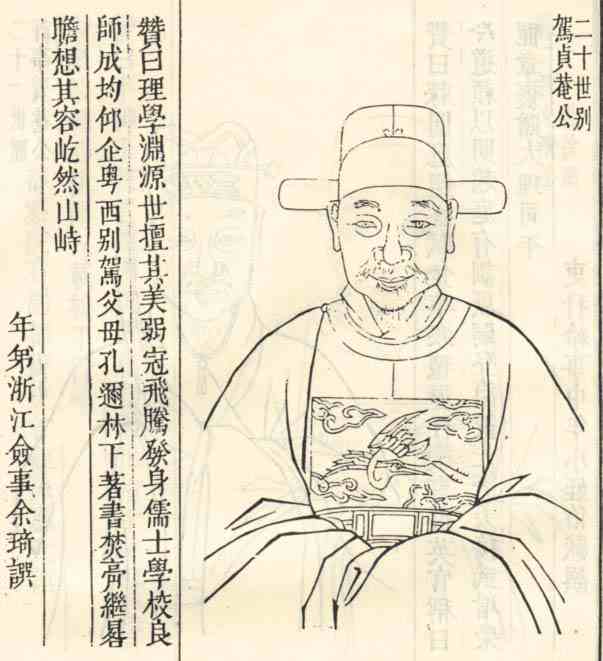 二十世别
駕貞菴公
贊曰理學淵源世擅其美弱冠飛騰發身儒士學校良
師成均仰企粤西别駕父母孔邇林下著書焚膏繼晷
瞻想其容屹然山峙
年弟浙江僉事余琦譔